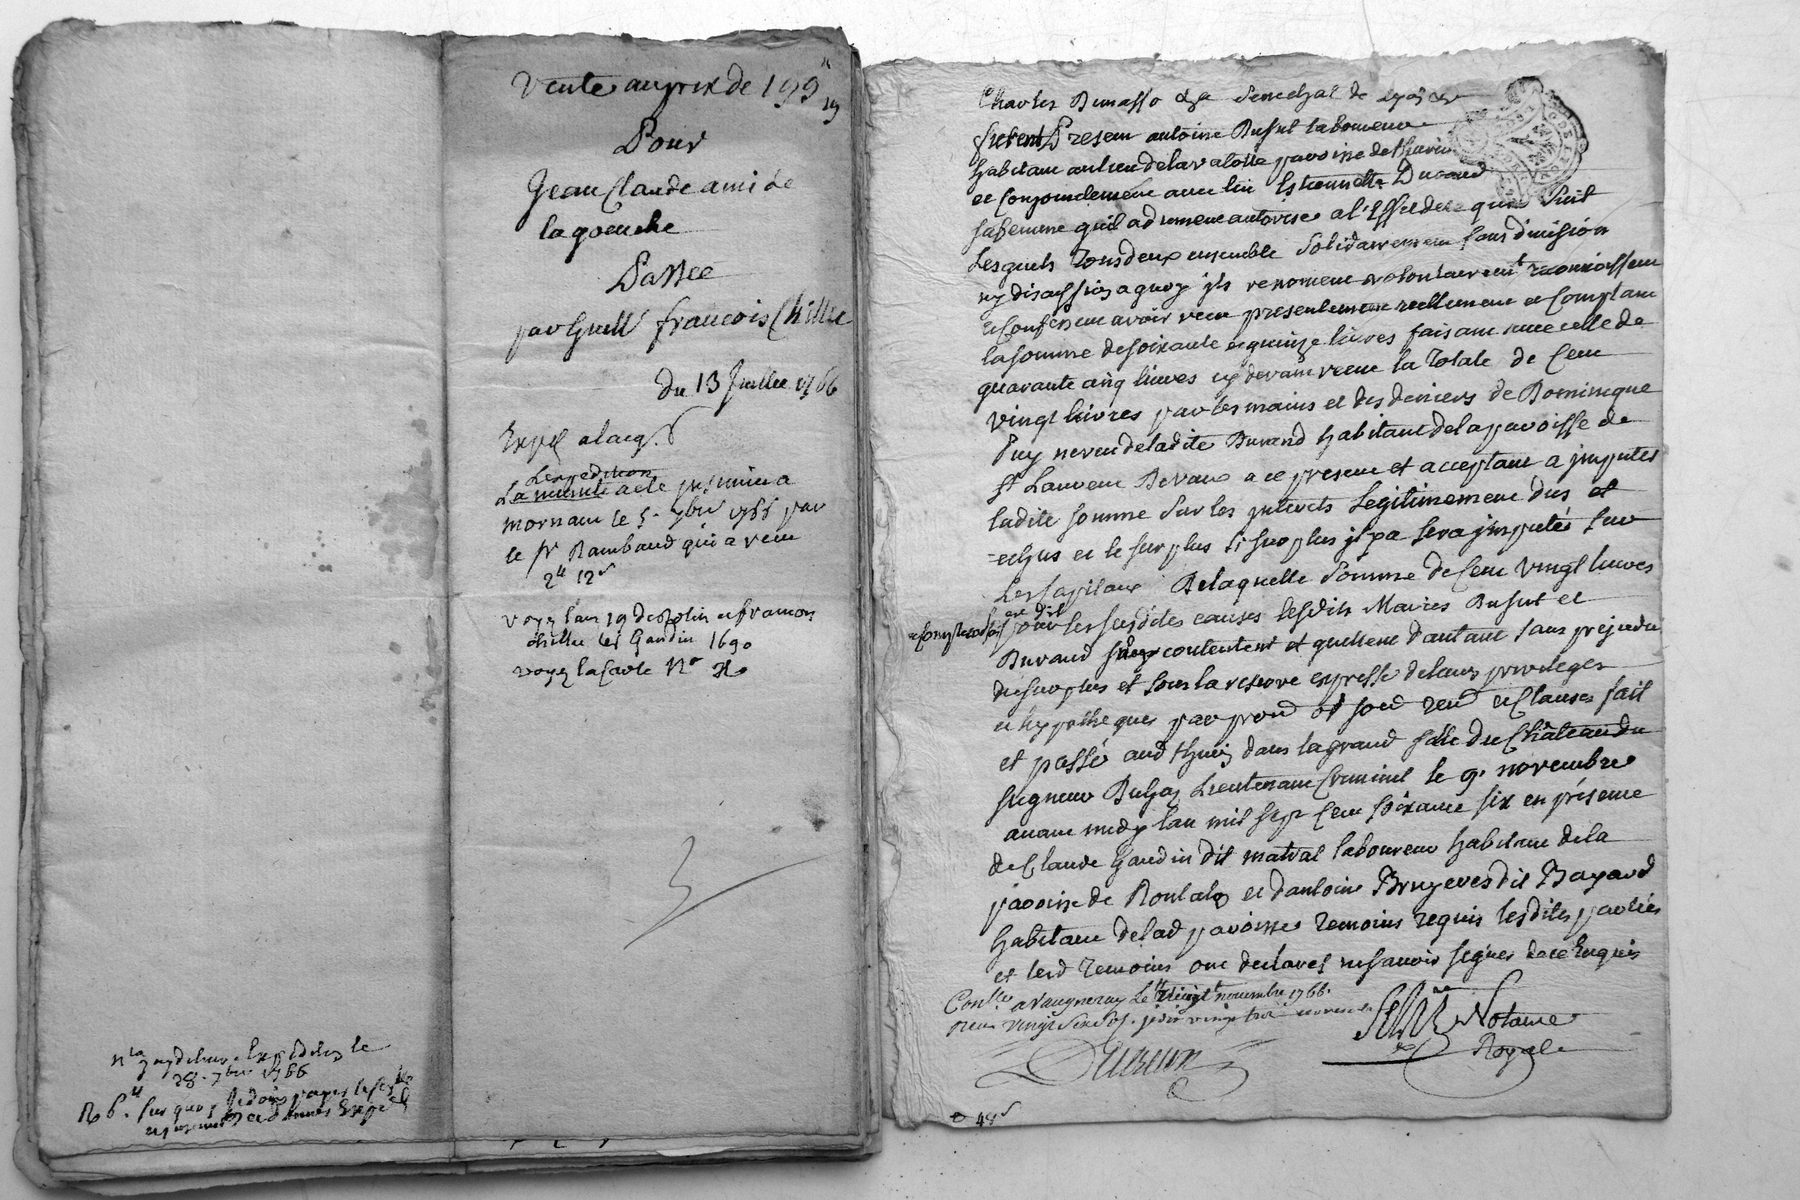 Vente au prix de 199ᵗᵗ 19
Pour
Jean Claude ami de
la gouche
Passée
par Guill François Chillet
du 13 Juillet 1766
Exped a lacq.
L'expedition
La minute acte
mornant le 5. 7bre 1766 par
le sr Rambaud qui a receu
2ᵗᵗ 12ˢ
Voyez
1690
voyez la Carte No
expedition le
28. 7bre 1766
sur quoy
Charles Senechal de Lyon
furent Present antoine Dufut laboureur
habitant au lieu de la valotte paroisse de thurin
et Conjoinctement avec luy Estiennette Durand
sa femme quil a dument autorisee a l'Effet de ce qui Suit
Lesquels Tous deux ensemble Solidairement sans division
ny discussion a quoy jls renoncent volontairement reconnoissent
et Confessent avoir receu presentement reellement et Comptant
la somme de soixante et quinze livres faisant avec celle de
quarante cinq livres cy devant receue la Totale de Cent
vingt livres par les mains et des deniers de Dominique
Puy neveu de ladite Durand habitant de la paroisse de
St Laurent De Vaux a ce present et acceptant a jmputer
ladite somme Sur les jnterets Legitimement dus et
echus et le surplus si surplus jl y a sera jmputés sur
Les Capitaux De laquelle Somme de Cent vingt livres
pour les susdites causes lesdits Mariés Dufut et
Durand contentent et quittent d'autant sans prejudice
du surplus et sous la reserve expresse de leurs privileges
et hypotheques par prom ob soum renon et Clauses fait
et passé aud thurin dans la grand salle du Château du
seigneur Dugas Lieutenant Criminel le 9. novembre
avant midy lan mil sept Cent soixante six en présence
de Claude Gaudin dit matral laboureur habitant de la
paroisse de Rontalon et d'antoine Bruyeres dit Bayard
habitant de lad paroisse Temoins requis lesdites parties
et lesd Temoins ont declarez ne savoir signer de ce Enquis
Conllé a Vaugneray Le vingt novembre 1766.
Notaire
Royal